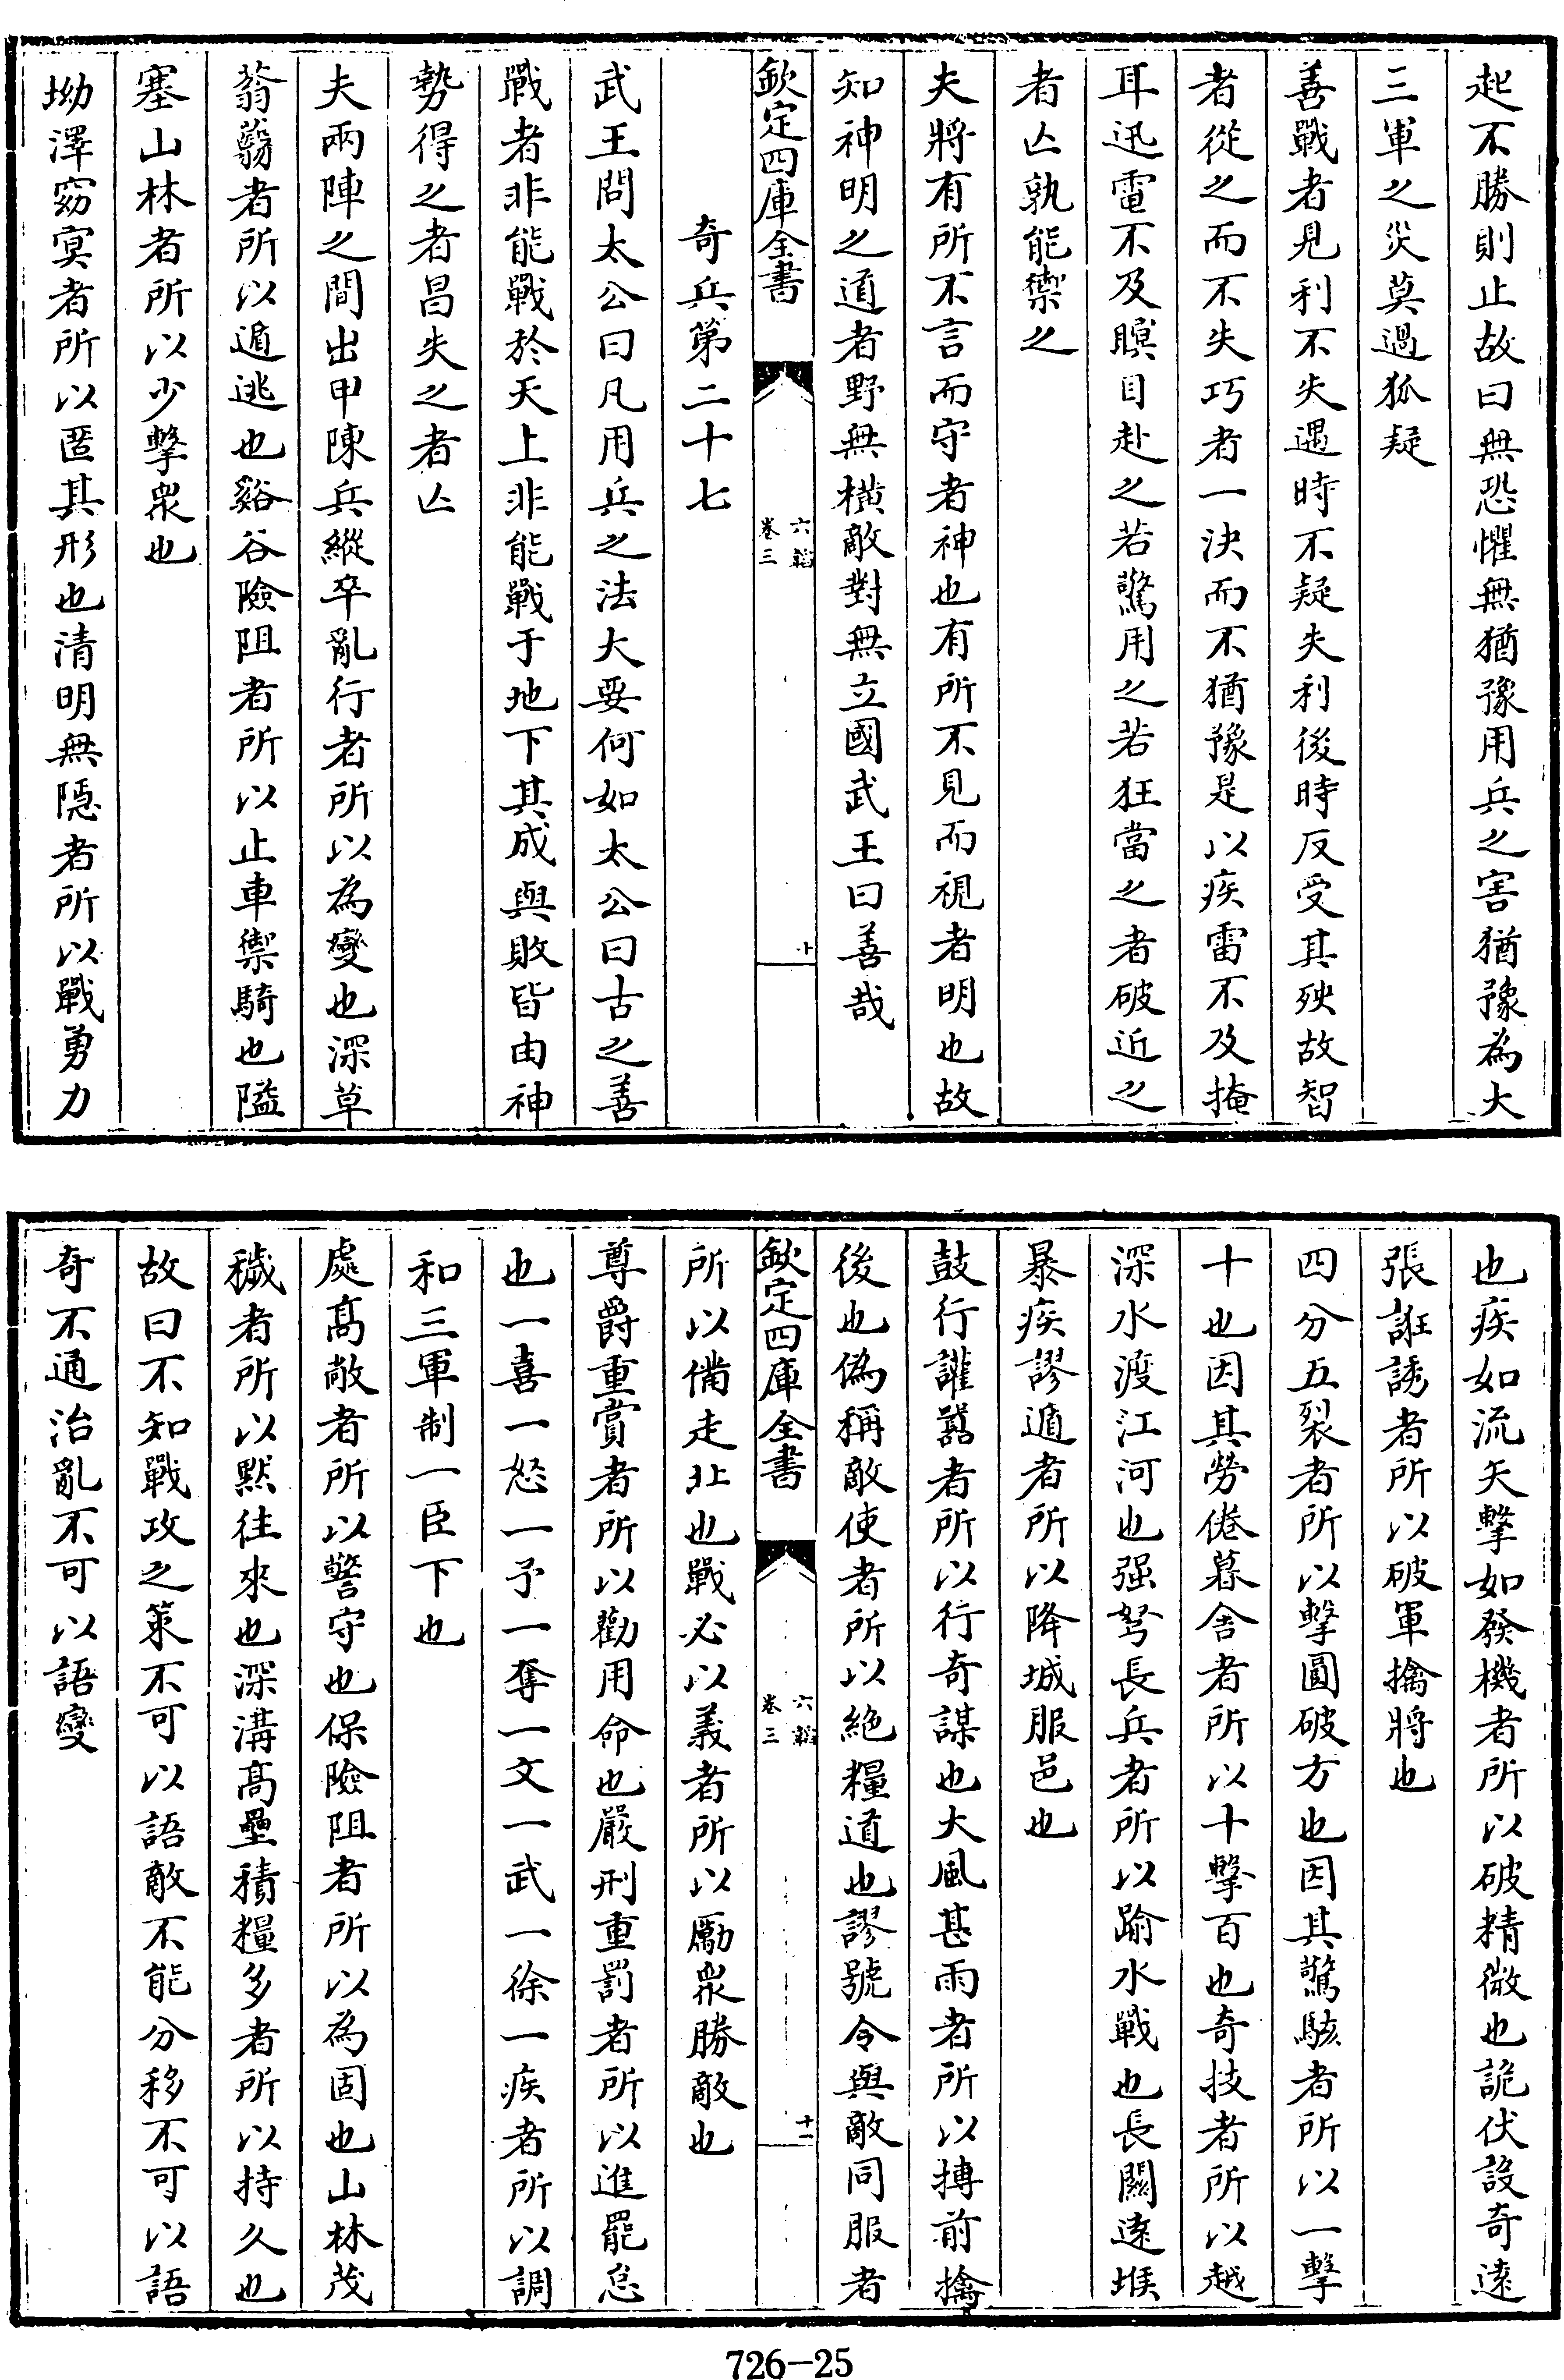 起不勝則止故曰無恐懼無猶豫用兵之害猶豫為大
三軍之災莫過狐疑
善戰者見利不失遇時不疑失利後時反受其殃故智
者從之而不失巧者一決而不猶豫是以疾雷不及掩
耳迅電不及瞑目赴之若驚用之若狂當之者破近之
者亾孰能禦之
夫將有所不言而守者神也有所不見而視者明也故
知神明之道者野無橫敵對無立國武王曰善哉
欽定四庫全書
六韜
卷三
十
奇兵第二十七
武王問太公曰凡用兵之法大要何如太公曰古之善
戰者非能戰於天上非能戰于地下其成與敗皆由神
勢得之者昌失之者亾
夫兩陣之間出甲陳兵縱卒亂行者所以為變也深草
蓊蘙者所以遁逃也谿谷險阻者所以止車禦騎也隘
塞山林者所以少擊衆也
坳澤窈冥者所以匿其形也清明無隱者所以戰勇力
也疾如流矢擊如發機者所以破精微也詭伏設奇遠
張誑誘者所以破軍擒將也
四分五裂者所以擊圓破方也因其驚駭者所以一擊
十也因其勞倦暮舍者所以十擊百也奇技者所以越
深水渡江河也强弩長兵者所以踰水戰也長關遠堠
暴疾謬遁者所以降城服邑也
鼓行讙囂者所以行奇謀也大風甚雨者所以搏前擒
後也偽稱敵使者所以絶糧道也謬號令與敵同服者
欽定四庫全書
六韜
卷三
十一
所以備走北也戰必以義者所以勵衆勝敵也
尊爵重賞者所以勸用命也嚴刑重罰者所以進罷怠
也一喜一怒一予一奪一文一武一徐一疾者所以調
和三軍制一臣下也
處髙敞者所以警守也保險阻者所以為固也山林茂
穢者所以黙往來也深溝髙壘積糧多者所以持久也
故曰不知戰攻之策不可以語敵不能分移不可以語
奇不通治亂不可以語變
726-25